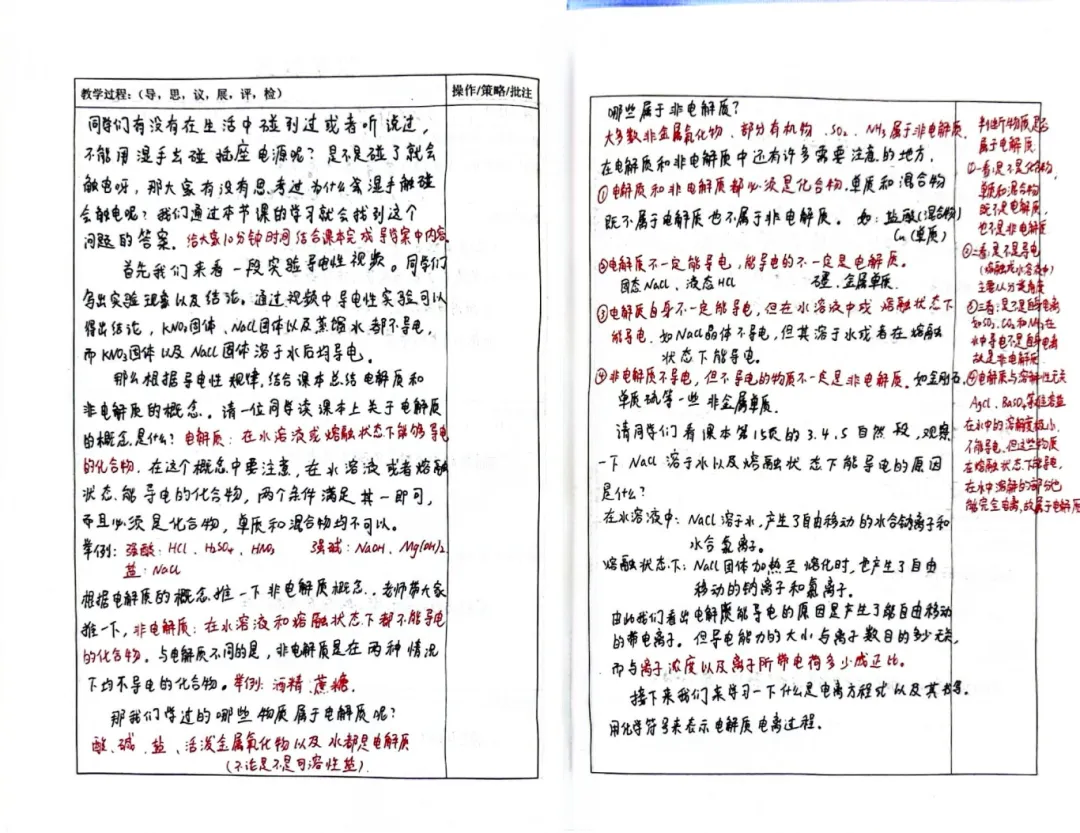 教学过程:(导,思,议,展,评,检)
操作/策略/批注
同学们有没有在生活中碰到过或者听说过,
不能用湿手去碰插座电源呢?是不是碰了就会
触电呀,那大家有没有思考过为什么湿手触碰
会触电呢?我们通过本节课的学习就会找到这个
问题的答案。给大家10分钟时间结合课本完成导学案中内容
首先我们来看一段实验导电性视频。同学们
写出实验现象以及结论,通过视频中导电性实验可以
得出结论,KNO₃固体、NaCl固体以及蒸馏水都不导电,
而KNO₃固体以及NaCl固体溶于水后均导电。
那么根据导电性规律,结合课本总结电解质和
非电解质的概念。请一位同学读课本上关于电解质
的概念是什么?电解质:在水溶液或熔融状态下能够导电
的化合物。在这个概念中要注意,在水溶液或者熔融
状态能导电的化合物,两个条件满足其一即可,
而且必须是化合物,单质和混合物均不可以。
举例:强酸:HCl、H₂SO₄、HNO₃ 强碱:NaOH、Mg(OH)₂
盐:NaCl
根据电解质的概念推一下非电解质概念,老师带大家
推一下,非电解质:在水溶液和熔融状态下都不能导电
的化合物。与电解质不同的是,非电解质是在两种情况
下均不导电的化合物。举例:酒精、蔗糖。
那我们学过的哪些物质属于电解质呢?
酸、碱、盐、活泼金属氧化物以及水都是电解质
(不论是不是可溶性盐)
哪些属于非电解质?
大多数非金属氧化物、部分有机物、SO₂、NH₃属于非电解质。
在电解质和非电解质中还有许多需要注意的地方,
①电解质和非电解质都必须是化合物,单质和混合物
既不属于电解质也不属于非电解质。如:盐酸(混合物)
Cu(单质)
②电解质不一定能导电,能导电的不一定是电解质。
固态NaCl、液态HCl 金属单质
③电解质自身不一定能导电,但在水溶液中或熔融状态下
能导电。如NaCl晶体不导电,但其溶于水或者在熔融
状态下能导电。
④非电解质不导电,但不导电的物质不一定是非电解质。如金刚石、
单质硫等一些非金属单质。
请同学们看课本第15页的3.4.5自然段,观察
一下NaCl溶于水以及熔融状态下能导电的原因
是什么?
在水溶液中:NaCl溶于水,产生了自由移动的水合钠离子和
水合氯离子。
熔融状态下:NaCl固体加热至熔化时,也产生了自由
移动的钠离子和氯离子。
由此我们看出电解质能导电的原因是产生了能自由移动
的带电离子。但导电能力的大小与离子数目的多少无关,
而与离子浓度以及离子所带电荷多少成正比。
接下来我们来学习一下什么是电离方程式以及其书写。
用化学符号来表示电解质电离过程。
判断物质是否
属于电解质
①一看:是不是化合物,
单质和混合物
既不是电解质,
也不是非电解质
②二看:是不是导电
(熔融或水溶液中)
③三看:是不是自身电离
如SO₂、CO₂和NH₃在
水中导电不是自身电离
故是非电解质
④电解质与溶解性无关
AgCl、BaSO₄等难溶盐
在水中的溶解度极小,
不能导电,但这些物质
在熔融状态下能导电,
在水中溶解的部分也
能完全电离,故属于电解质